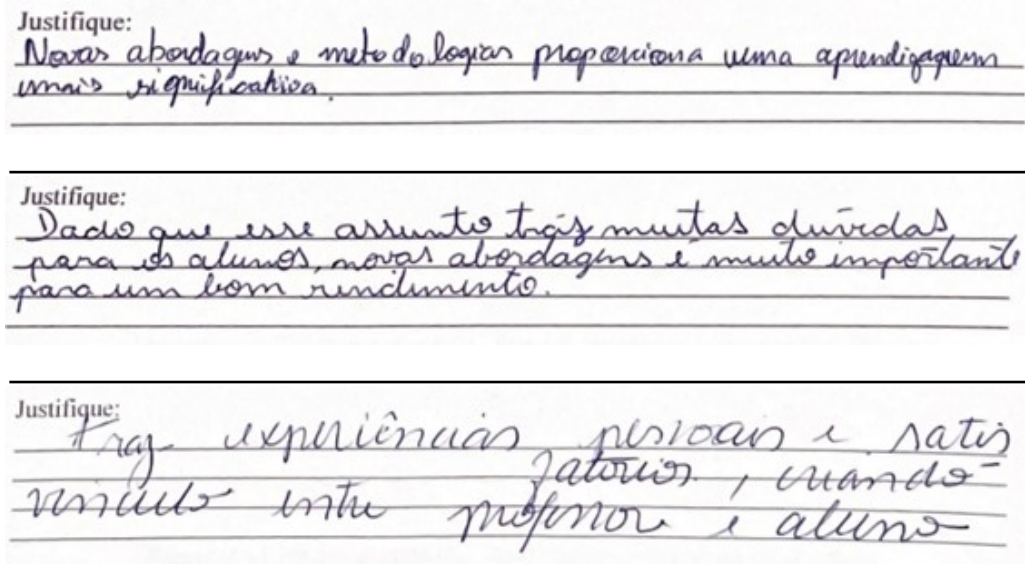 Justifique:
Novas abordagens e metodologias proporciona uma aprendizagem
mais significativa.
Justifique:
Dado que esse assunto trás muitas dúvidas
para os alunos, novas abordagens é muito importante
para um bom rendimento.
Justifique:
traz experiências pessoais e satis
fatórios, criando
vinculo entre professor e aluno